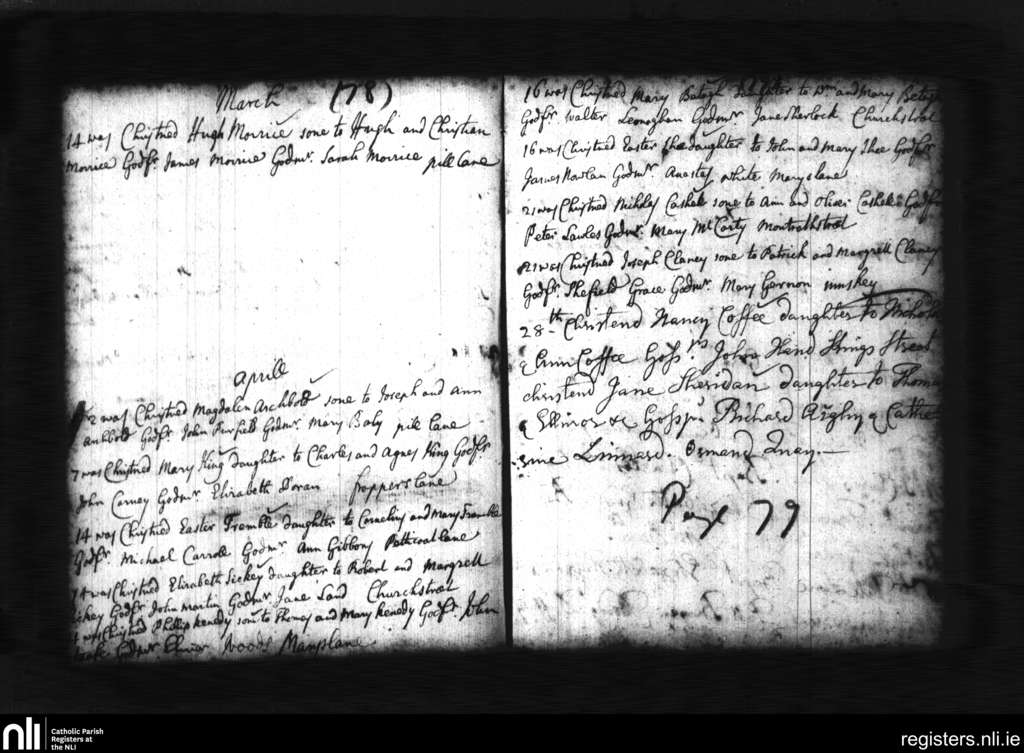 March (78)
14 was Christned Hugh Morrice sone to Hugh and Christian
Morrice Godfr. James Morrice Godmr. Sarah Morrice pill Lane
Aprill
2 was Christned Magdalen Archbold sone to Joseph and ann
Godfr. John Godmr. Mary Baly pill Lane
7 was Christned Mary King Daughter to Charles and Agnes King Godfr.
John Carney Godmr. Elizabeth Doran fropperslane
14 was Christned Easter Tremble Daughter to Cornelius and Mary Tremble
Godfr. Michael Carroll Godmr. Ann Gibbons Petticoat lane
14 was Christned Elizabeth Sickey Daughter to Robert and Margrett
Godfr. John Martin Godmr. Jane Land Churchstreet
was Christned Phillip Kenedy sone to Thomas and Mary Kenedy Godfr. John
Godmr. Woods Maryslane
16 was Christned Mary Daughter to Wm and Mary
Godfr. Walter Leonaghan Godmr. Jane Sherlock Churchstreet
16 was Christned Easter Shee Daughter to John and Mary Shee Godfr
James Nowlan Godmr. Anastas white Maryslane
21 was Christned Nicholas Cashell sone to Ann and Oliver Cashell Godfr
Peter Lawles Godmr. Mary McCarty Montrathstreet
21 was Christned Joseph Claney sone to Patrick and Margrett Claney
Godfr. Shefield Grace Godmr. Mary Gernon innskey
28th Christend Nancy Coffee daughter to Nichola
& Ann Coffee Gossrs John Hand Kings Street
christend Jane Sheridan daughter to Thomas
& Ellinor & Gossprs Richard & Cathe
rine Linnard. Ormand Quay.
Page 79
nli
Catholic Parish
Registers at
the NLI
registers.nli.ie